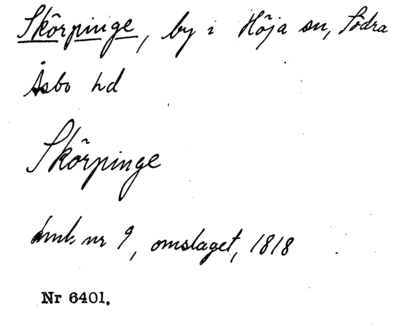 Skörpinge, by i Höja sn, Södra
Åsbo hd
Skörpinge
Lmk nr 9, omslaget, 1818
Nr 6401.